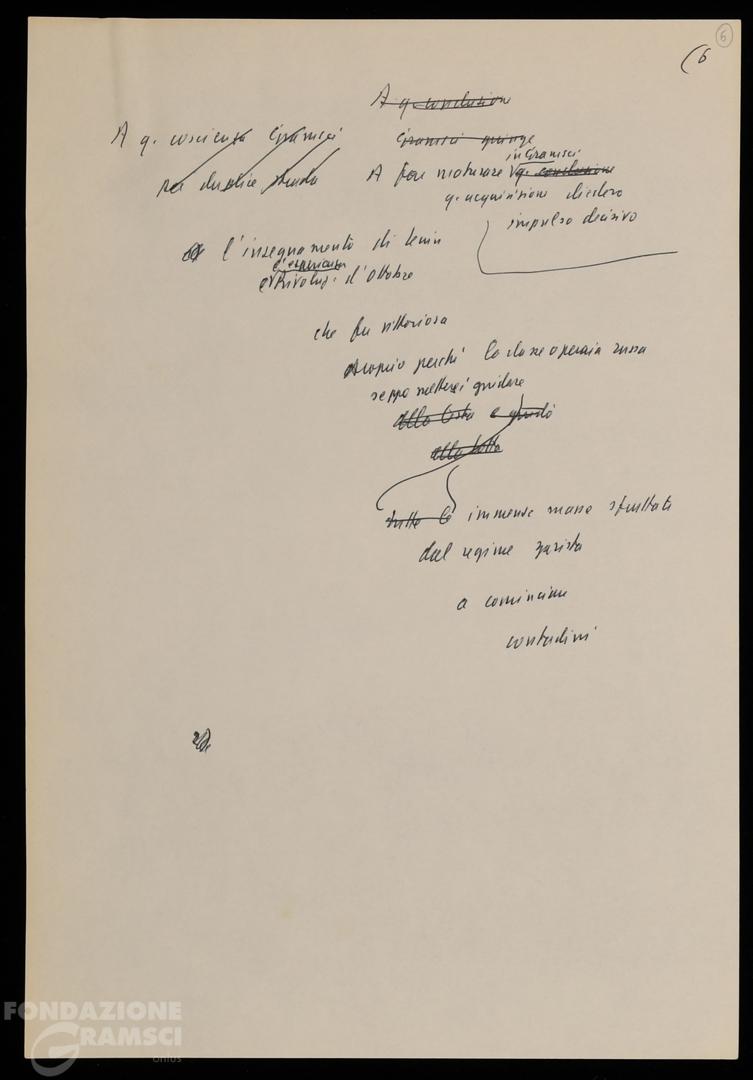 6
(6
A q. conclusione
A q. coscienza Gramsci
Gramsci giunge
per duplice strada
in Gramsci
A fare maturare q. conclusione
q. acquisizione diedero
impulso decisivo
l'insegnamento di Lenin
l'esperienza
e Rivoluz. d'Ottobre
che fu vittoriosa
proprio perché la classe operaia russa
seppe mettersi guidare
alla testa e guidò
alla lotta
tutte le immense masse sfruttate
dal regime zarista
a cominciare
contadini
FONDAZIONE
GRAMSCI
onlus